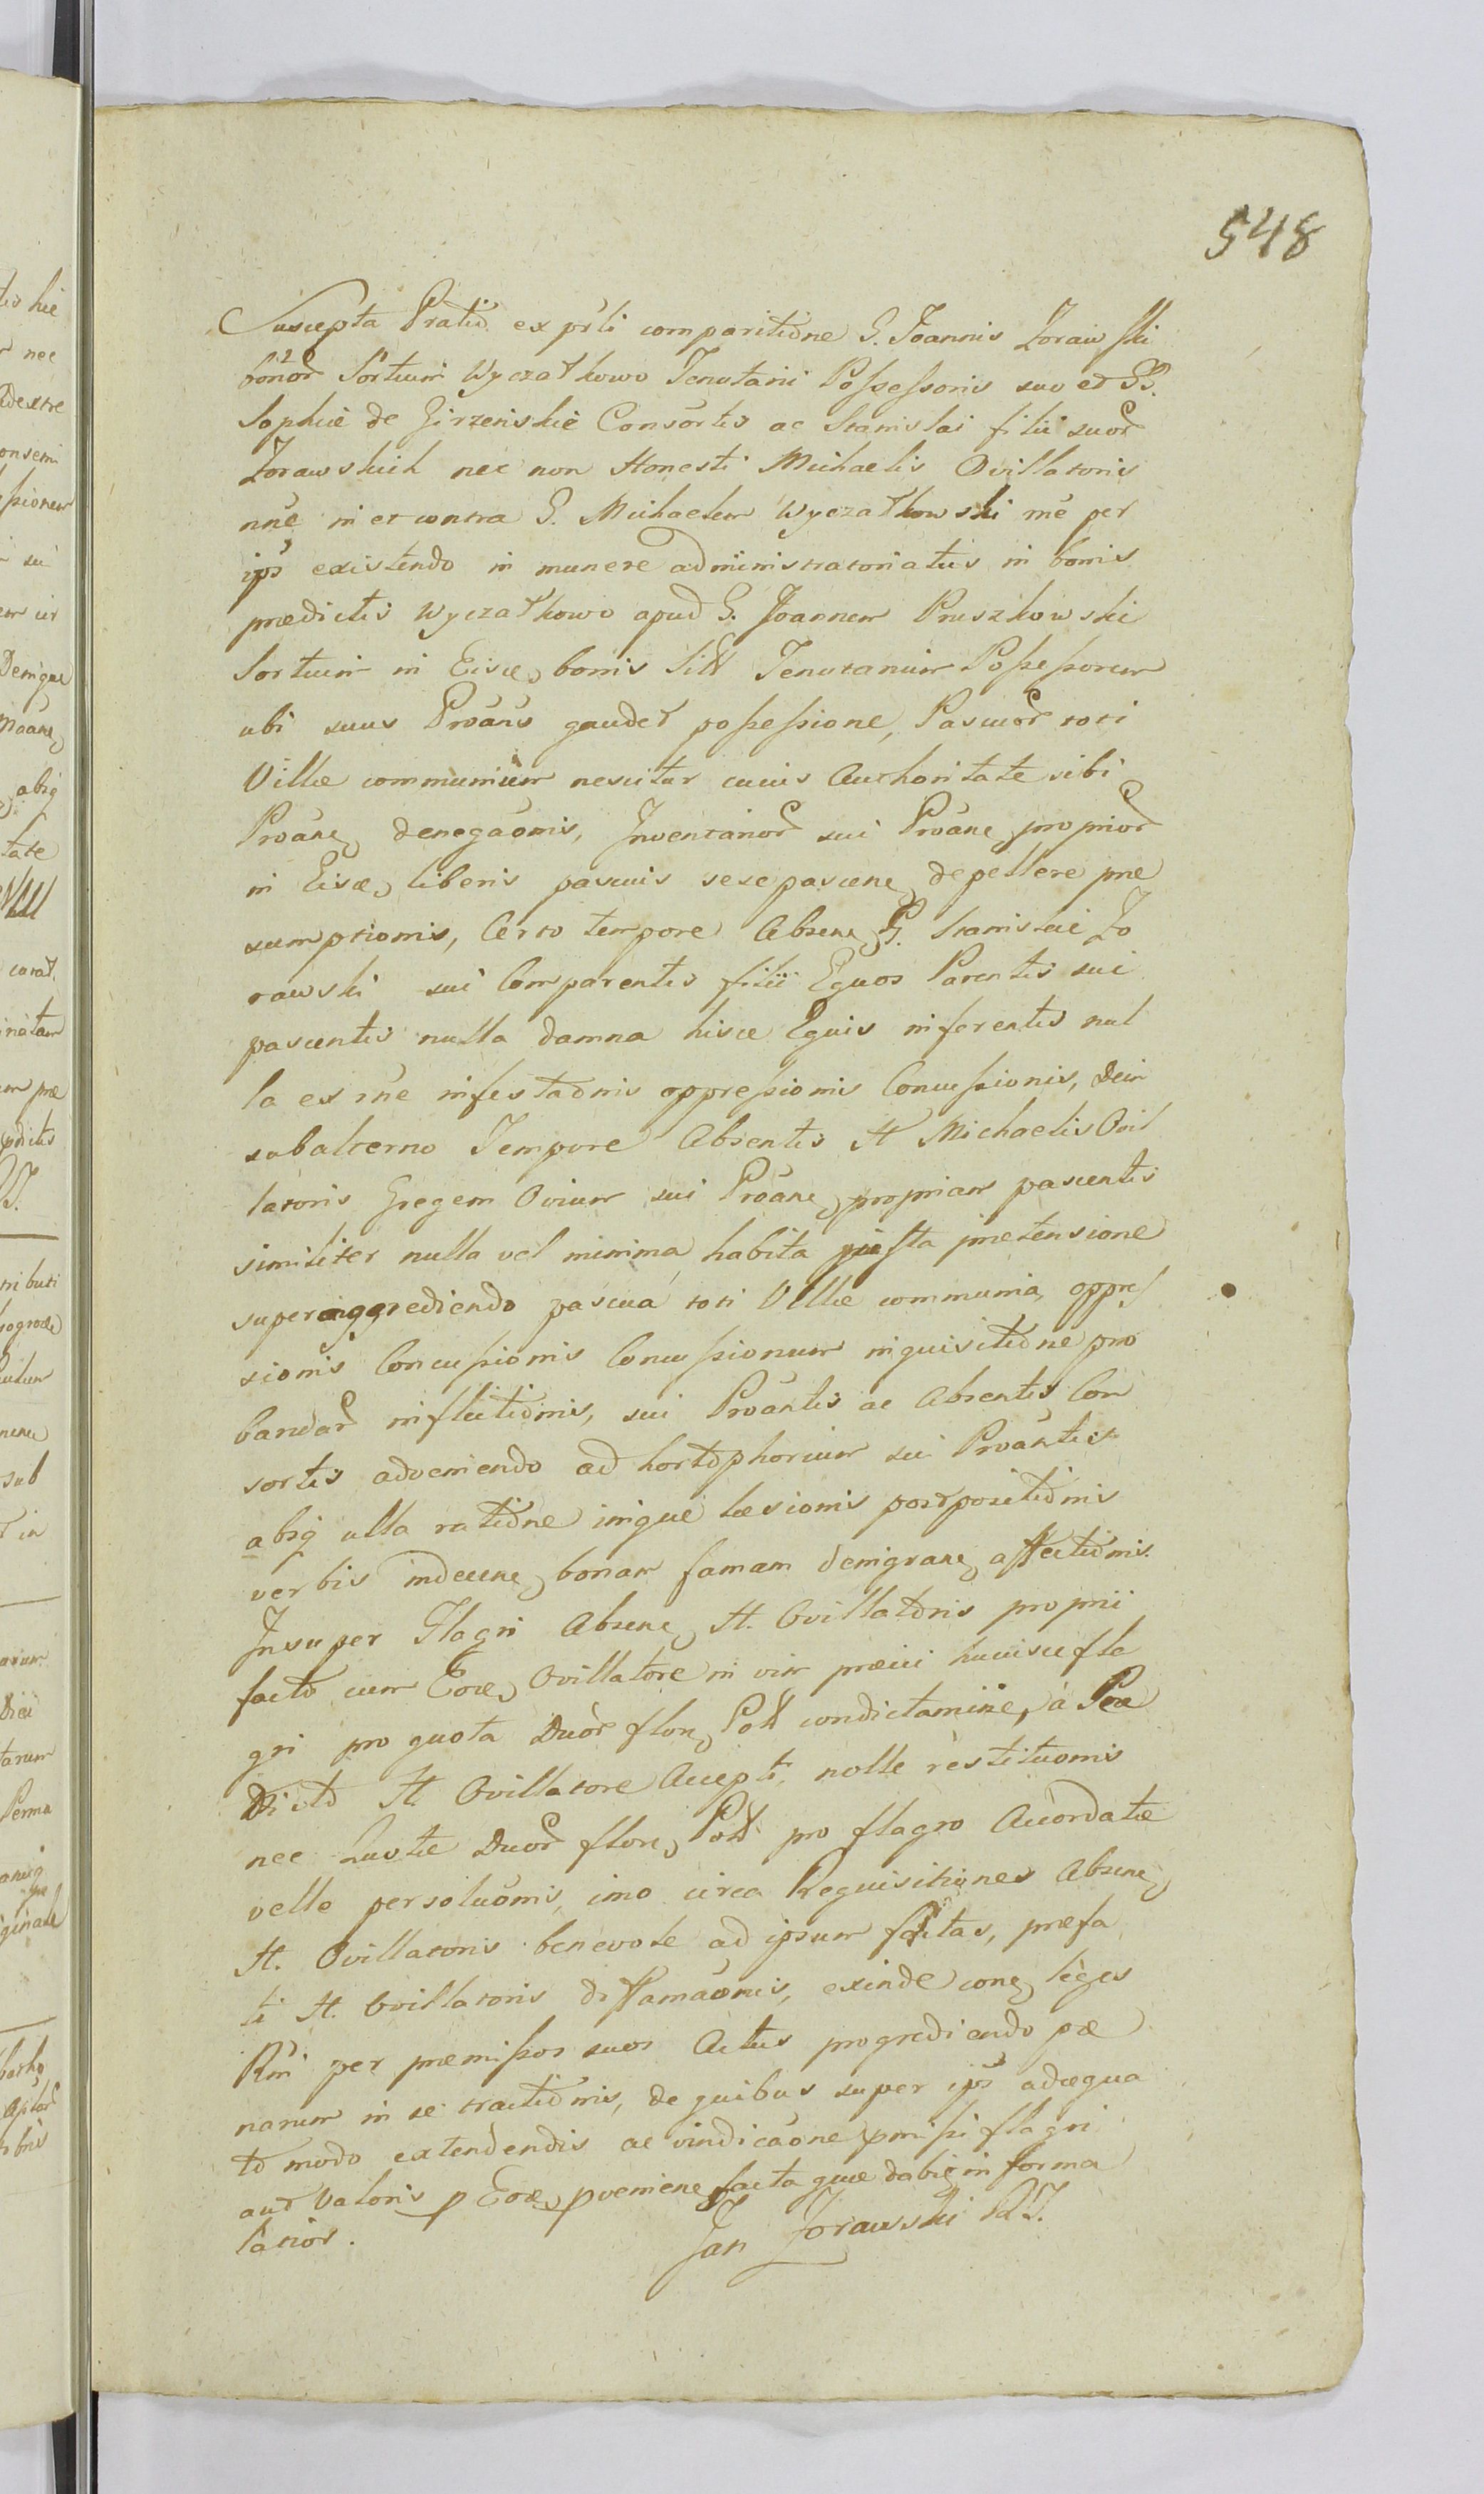 548
Suscepta Pratio ex prli comparitione G. Joannis Zorawski
bonor Sortium Wyczałkowo Tenutarii Possessoris suo et GG.
Sophie de Girzenskie Consortis ac Stanislai filii suor
Zorawskich nec non Honesti Michaelis Ovillatoris
nne in et contra G. Michaelem Wyczałkowski me per
ips existendo in munere administratoriatus in bonis
prædictis Wyczałkowo apud G. Joannem Pruszkowski
Sortium in Eisde bonis Tenutarium Possessorem
ubi suus Proans gaudet possessione, Pascuor toti
Villæ communium nescitur cuius Authoritate sibi
Proane denegaonis, Inventarior sui Proane proprior
in Eisde liberis pascuis sese pascene depellere præ
sumptionis, Certo tempore Absene G. Stanislai Zo
rawski sui Comparentis filii Equos Parentis sui
pascentis nulla damna hisce Equis inferentis nul
la ex rne infestaonis oppressionis Concussionis, Dein
subalterno Tempore Absentis H Michaelis Ovil
latoris Gregem Ovium sui Proane propriam pascentis
similiter nulla vel minima habita justa prætensione
superaggrediendo pascua toti Villæ communia, oppres
sionis Concussionis Concussionum inquisitione pro
bandar inflictionis, sui Proantis ac Absentis Con
sortis adveniendo ad sui Proantis
absq ulla ratione inique læsionis postpositionis
verbis indecene bonam famam denigrane affectionis
Insuper Flagri Absene H. Ovillatoris proprii
facto cum Eode Ovillatore in vim prævii huiusce fla
gri pro quota Duor flore Poll condictamine, à Præ
Dicto H. Ovillatore Accepti nolle restituonis
nec Duor flore Poll pro flagro Accordatæ
velle persoluonis, imo circa Requisitiones Absene
H. Ovillatoris benevole ad ipsum factas, præfa
ti H. Ovillatoris diffamaonis, exinde cone leges
Rni per præmissos suos Actus progrediendo pæ
narum in se tractionis, de quibus super ips adæqua
to modo extendendis ac vindicaone pmissi flagri
aut Valoris p Eode pveniene facta quæ dabie in forma
latior.
Jan Zorawski